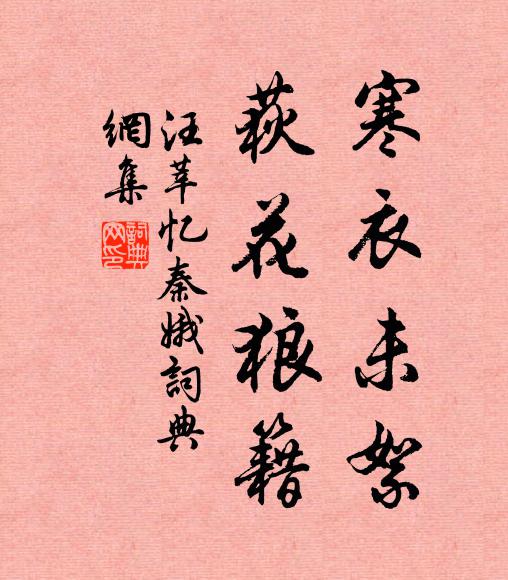 寒衣未絮
荻花狼籍
汪莘忆秦娥詞典
網集
詞典
网印